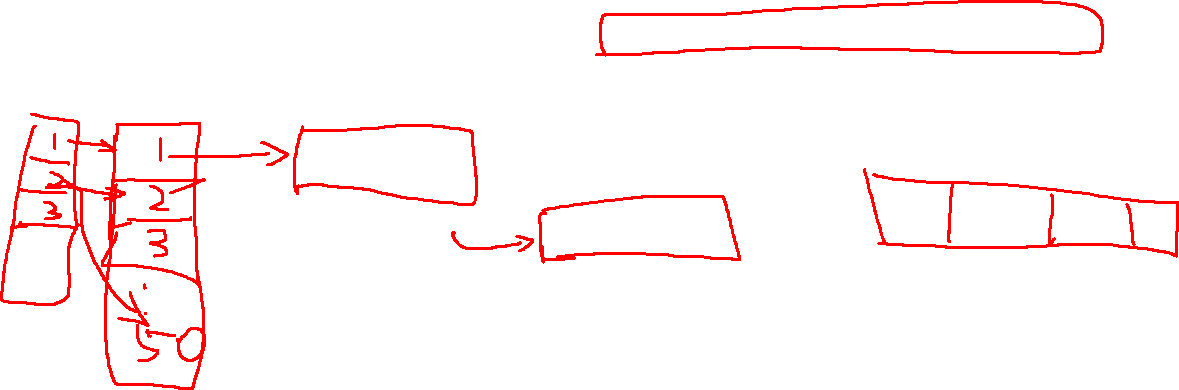 1
2
3
1
2
3
5